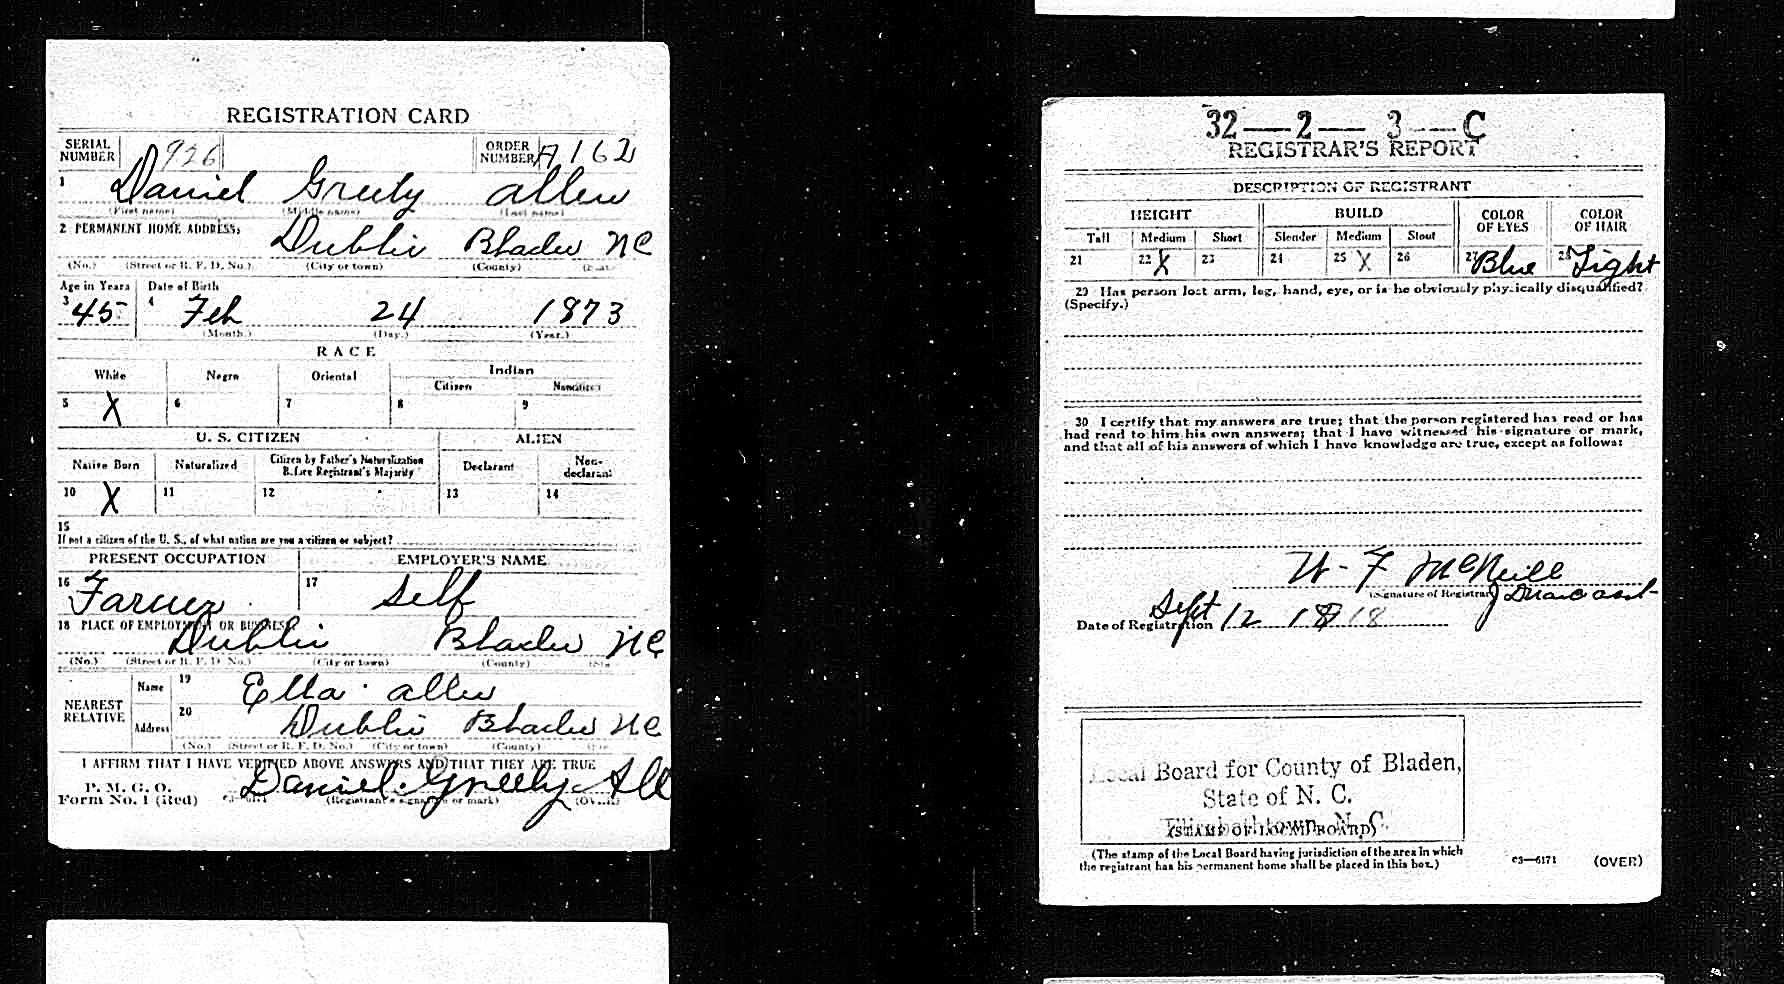 REGISTRATION CARD
SERIAL NUMBER 926 ORDER NUMBER A 162
1 Daniel Greely Allen
(First name) (Middle name) (Last name)
2 PERMANENT HOME ADDRESS:
Dublin Bladen NC
(No.) (Street or R. F. D. No.) (City or town) (County) (State)
Age in Years Date of Birth
3 45 4 Feb 24 1873
(Month.) (Day.) (Year.)
RACE
White Negro Oriental Indian
Citizen Noncitizen
5 X 6 7 8 9
U. S. CITIZEN ALIEN
Native Born Naturalized Citizen by Father's Naturalization Before Registrant's Majority Declarant Non-declarant
10 X 11 12 13 14
15
If not a citizen of the U. S., of what nation are you a citizen or subject?
PRESENT OCCUPATION EMPLOYER'S NAME
16 Farmer 17 Self
18 PLACE OF EMPLOYMENT OR BUSINESS:
Dublin Bladen NC
(No.) (Street or R. F. D. No.) (City or town) (County) (State)
NEAREST RELATIVE Name 19 Ella Allen
Address 20 Dublin Bladen NC
(No.) (Street or R. F. D. No.) (City or town) (County) (State)
I AFFIRM THAT I HAVE VERIFIED ABOVE ANSWERS AND THAT THEY ARE TRUE
P. M. G. O.
Form No. 1 (Red) c3—6171 Daniel Greely All
(Registrant's signature or mark) (OVER)
32—2—3—C
REGISTRAR'S REPORT
DESCRIPTION OF REGISTRANT
HEIGHT BUILD COLOR OF EYES COLOR OF HAIR
Tall Medium Short Slender Medium Stout
21 22 X 23 24 25 X 26 27 Blue 28 Light
29 Has person lost arm, leg, hand, eye, or is he obviously physically disqualified?
(Specify.)
30 I certify that my answers are true; that the person registered has read or has
had read to him his own answers; that I have witnessed his signature or mark,
and that all of his answers of which I have knowledge are true, except as follows:
W. F McNeill
(Signature of Registrar)
Date of Registration Sept 12 1918
Local Board for County of Bladen,
State of N. C.
Elizabethtown, N. C.
(STAMP OF LOCAL BOARD)
(The stamp of the Local Board having jurisdiction of the area in which
the registrant has his permanent home shall be placed in this box.)
c3—6171 (OVER)